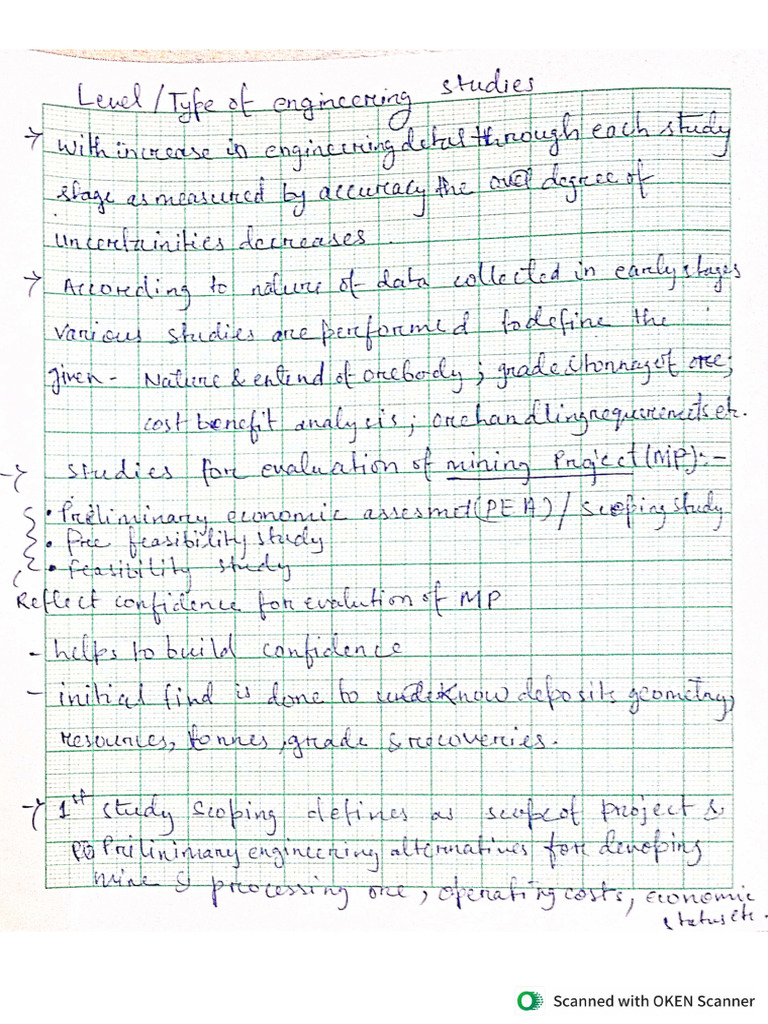 Level/Type of engineering studies
→ With increase in engineering detail through each study
stage as measured by accuracy the degree of
uncertainities decreases.
→ According to nature of data collected in early stages
various studies are performed to define the
given - Nature & extend of orebody; grade & tonnage of ore;
cost benefit analysis; ore handling requirements etc.
→ Studies for evaluation of mining Project (MP):-
• Preliminary economic assesmet (PEA) / Scoping study
• Pre feasibility study
• feasibility study
Reflect confidence for evalution of MP
- helps to build confidence
- initial find is done to know deposits geometry,
resources, tonnes, grade & recoveries.
→ 1st study scoping defines as scope of project &
Prilinimary engineering alternatives for devoping
mine & processing ore, operating costs, economic
status etc.
Scanned with OKEN Scanner